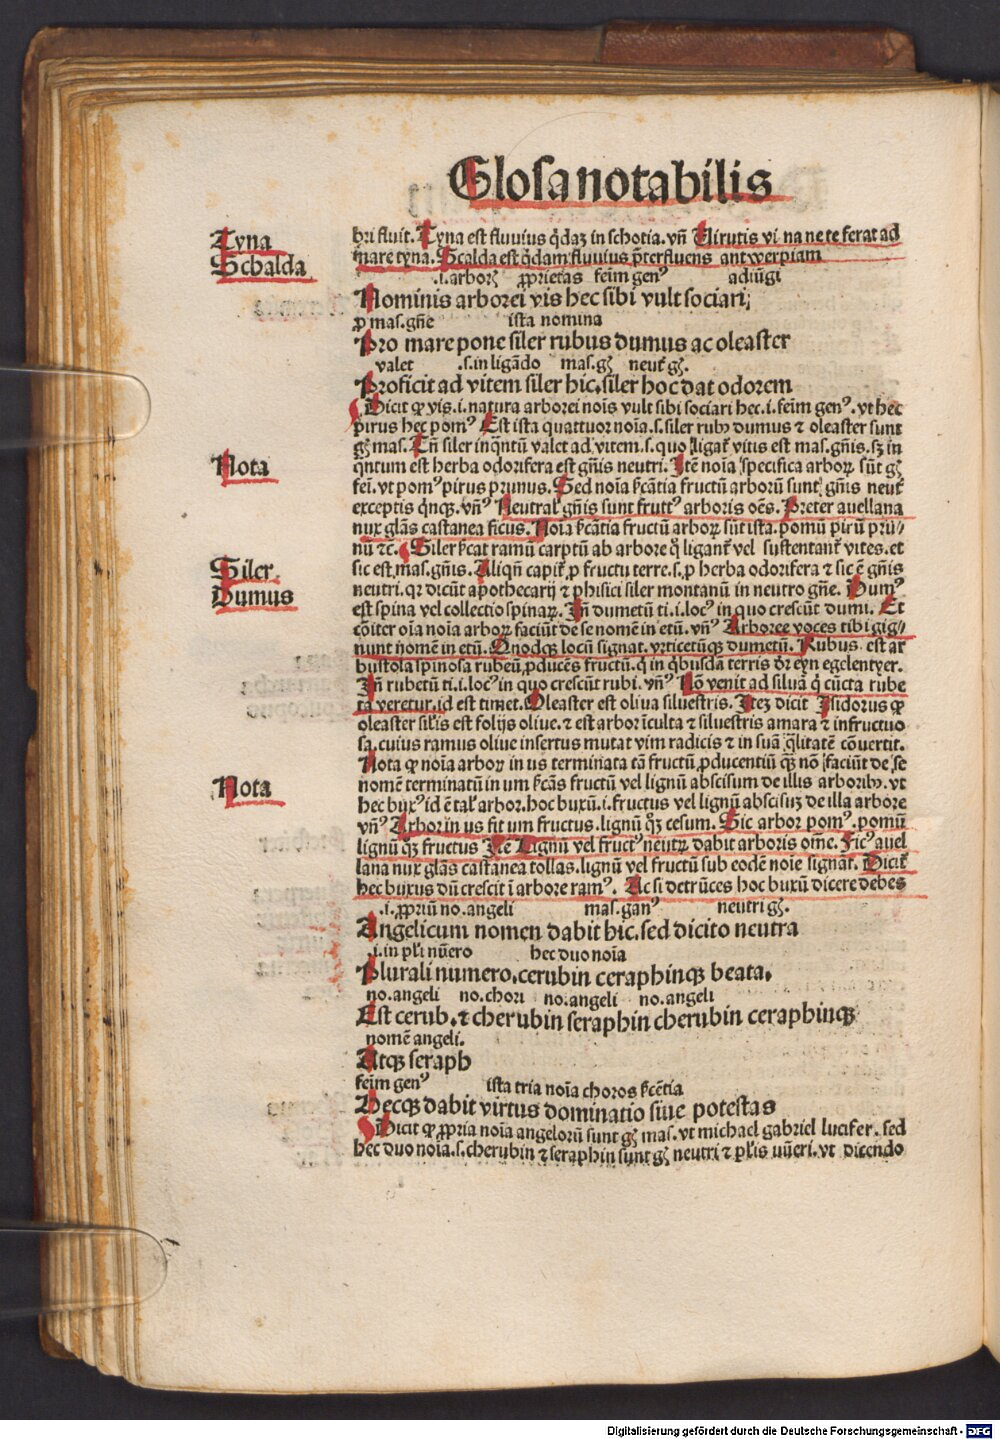 Glosa notabilis
Tyna
Scbalda
bri fluit. Tyna est fluvius q̄daʒ in schotia. vn̄ Uirutis vi na ne te ferat ad
mare tyna. Scalda est q̄dam fluvius p̄terfluens antwerpiam
.i. arborꝝ ꝓprietas fei͂m genꝰ adiūgi
Nominis arborei vis hec sibi vult sociari;
ꝓ mas. gn̄e ista nomina
Pro mare pone siler rubus dumus ac oleaster
valet .s. in ligādo mas. gꝫ neut͛ gꝫ.
Proficit ad vitem siler hic. siler hoc dat odorem
Dicit ꝙ vis .i. natura arborei noīs vult sibi sociari hec .i. fei͂m genꝰ. vt hec
pirus hec pomꝰ Est ista quattuor noīa .s. siler rubꝰ dumus ⁊ oleaster sunt
gꝫ mas. Tn̄ siler inqn̄tū valet ad vitem .s. quo ligat͛ vitis est mas. gn̄is. sꝫ in
Nota
qn̄tum est herba odorifera est gn̄is neutri. Itē noīa specifica arborꝝ sūt gꝫ
fei͂. vt pomꝰ pirus prunus. Sed noīa sc̄atia fructū arborū sunt gn̄is neut͛
exceptis q̄nqꝫ. vn̄ꝰ Neutral͛ gn̄is sunt frutꝰ arboris oēs. Preter auellana
nux glās castanea ficus. Noīa sc̄atia fructū arborꝝ sūt ista. pomū pirū pru⸗
nū ⁊c. Siler sc̄at ramū carptū ab arbore q̄ ligant͛ vel sustentant͛ vites. et
Siler
sic est mas. gn̄is. Aliqn̄ capit͛ ꝓ fructu terre .s. ꝓ herba odorifera ⁊ sic ē gn̄is
Dumus
neutri. qꝛ dicūt apothecarij ⁊ phisici siler montanū in neutro gn̄e. Dumꝰ
est spina vel collectio spinaꝝ. In̄ dumetū ti .i. locꝰ in quo crescūt dumi. Et
cōiter oīa noīa arborꝝ faciūt de se nomē in etū. vn̄ꝰ Arboree voces tibi gig⸗
nunt nomē in etū. Quodqꝫ locū signat. vrticetūqꝫ dumetū. Rubus est ar
bustola spinosa rubeū ꝓducēs fructū. q̄ in q̄busdā terris dr̄ eyn egelentyer.
In̄ rubetū ti .i. locꝰ in quo crescūt rubi. vn̄ꝰ Nō venit ad siluā q̄ cūcta rube
ta veretur. id est timet. Oleaster est oliua siluestris. Iteꝫ dicit Isidorus ꝙ
oleaster sil͛is est folijs oliue. ⁊ est arbor īculta ⁊ siluestris amara ⁊ infructuo
sa. cuius ramus oliue insertus mutat vim radicis ⁊ in suā q̄litatē cōuertit.
Nota ꝙ noīa arborꝝ in us terminata tā fructū ꝓducentiū qꝫ nō faciūt de se
Nota
nomē terminatū in um sc̄ās fructū vel lignū abscisum de illis arboribꝰ. vt
hec buxꝰ id ē tal͛ arbor. hoc buxū .i. fructus vel lignū abscisuꝫ de illa arbore
vn̄ꝰ Arbor in us fit um fructus. lignū qꝫ cesum. Sic arbor pomꝰ. pomū
lignū qꝫ fructus Itē Lignū vel fructꝰ neutꝝ dabit arboris om̄e. Ficꝰ auel
lana nux glās castanea tollas. lignū vel fructū sub eodē noīe signat. Dicit͛
hec buxus dū crescit ī arbore ramꝰ. Ac si detrūces hoc buxū dicere debes
.i. ꝓpriū no. angeli mas. ganꝰ neutri gꝫ.
Angelicum nomen dabit hic. sed dicito neutra
.i. in pl͛i nūero hec duo noīa
Plurali numero. cerubin ceraphinqꝫ beata.
no. angeli no. chori no. angeli no. angeli
Est cerub. ⁊ cherubin seraphin cherubin ceraphinqꝫ
nomē angeli.
Atqꝫ seraph
fei͂m genꝰ ista tria noīa choros sc̄ētia
Hecqꝫ dabit virtus dominatio siue potestas
Dicit ꝙ ꝓpria noīa angelorū sunt gꝫ mas. vt michael gabriel lucifer. sed
hec duo noīa .s. cherubin ⁊ seraphin sunt gꝫ neutri ⁊ pl͛is nūeri. vt dicendo
Digitalisierung gefördert durch die Deutsche Forschungsgemeinschaft - DFG